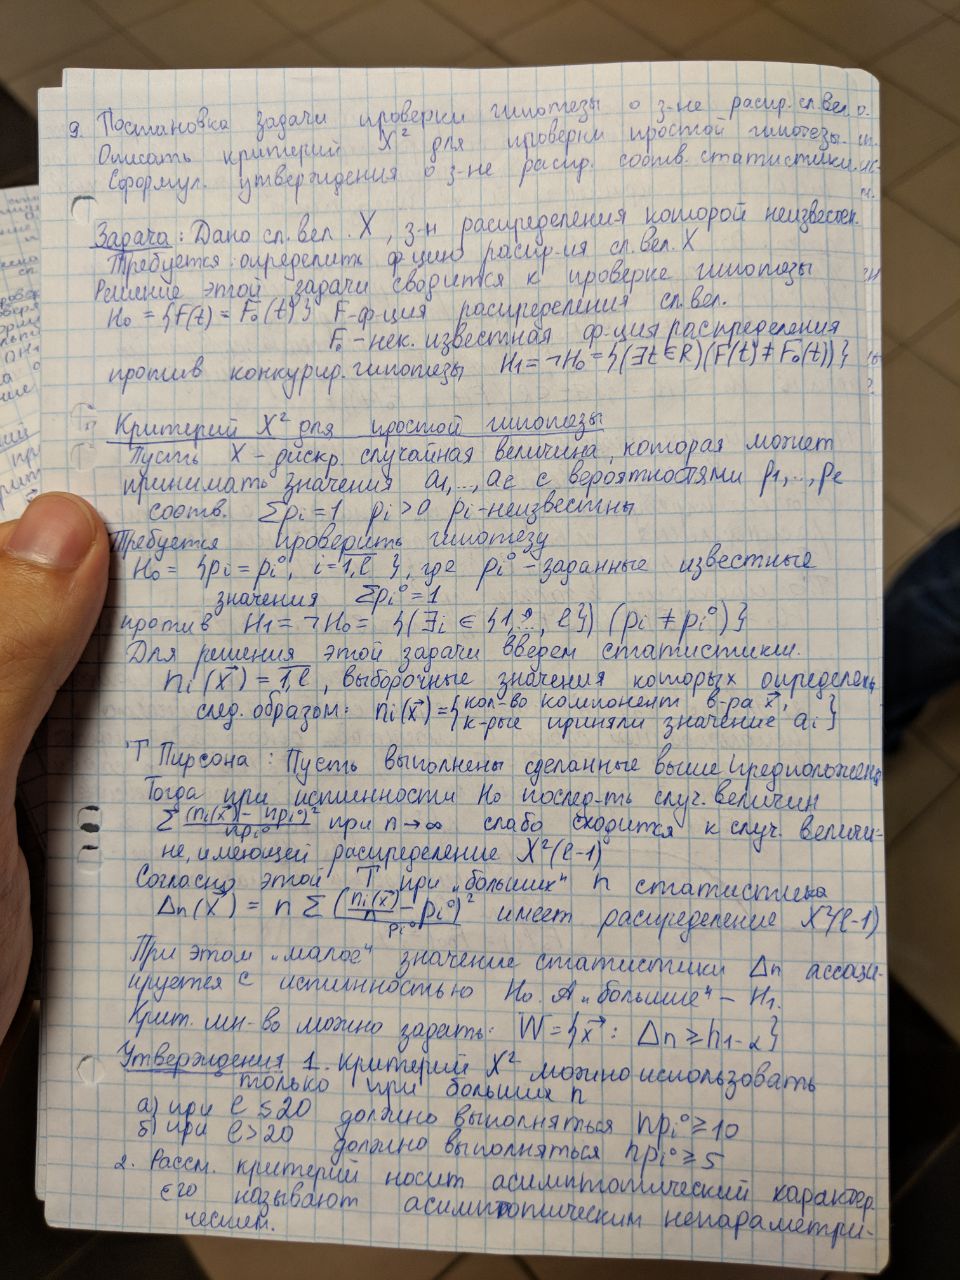 9. Постановка задачи проверки гипотезы о з-не распр. сл. вел.
Описать критерий X² для проверки простой гипотезы.
Сформул. утверждения о з-не распр. соотв. статистики.
Задача: Дано сл. вел. X, з-н распределения которой неизвестен.
Требуется определить ф-цию распр-ия сл. вел. X
Решение этой задачи сводится к проверке гипотезы
H₀ = {F(t) = F₀(t)} F-ф-ция распределения сл. вел.
F₀ - нек. известная ф-ция распределения
против конкурир. гипотезы H₁ = ¬H₀ = {(∃t ∈ R)(F(t) ≠ F₀(t))}
Критерий X² для простой гипотезы
Пусть X - дискр. случайная величина, которая может
принимать значения a₁,..,aℓ с вероятностями p₁,..,pℓ
соотв. Σpᵢ = 1 pᵢ > 0 pᵢ - неизвестны
Требуется проверить гипотезу
H₀ = {pᵢ = pᵢ⁰, i = 1,ℓ}, где pᵢ⁰ - заданные известные
значения Σpᵢ⁰ = 1
против H₁ = ¬H₀ = {(∃i ∈ {1,.., ℓ}) (pᵢ ≠ pᵢ⁰)}
Для решения этой задачи введем статистики.
nᵢ(x⃗) = 1,ℓ, выборочные значения которых определены
след. образом: nᵢ(x⃗) = {кол-во компонент в-ра x⃗,
к-рые приняли значение aᵢ}
Т Пирсона: Пусть выполнены сделанные выше предположения
Тогда при истинности H₀ послед-ть случ. величин
Σ (nᵢ(x⃗) - npᵢ⁰)² / npᵢ⁰ при n→∞ слабо сходится к случ. величи-
не, имеющей распределение X²(ℓ-1)
Согласно этой Т при „больших“ n статистика
Δn(x⃗) = n Σ (nᵢ(x⃗)/n - pᵢ⁰)² / pᵢ⁰ имеет распределение X²(ℓ-1)
При этом „малое“ значение статистики Δn ассоци-
ируется с истинностью H₀. А „большие“ - H₁.
Крит. мн-во можно задать: W = {x⃗ : Δn ≥ h₁₋α}
Утверждения 1. Критерий X² можно использовать
только при больших n
а) при ℓ ≤ 20 должно выполняться npᵢ⁰ ≥ 10
б) при ℓ > 20 должно выполняться npᵢ⁰ ≥ 5
2. Рассм. критерий носит асимптотический характер.
Его называют асимптотическим непараметри-
ческим.